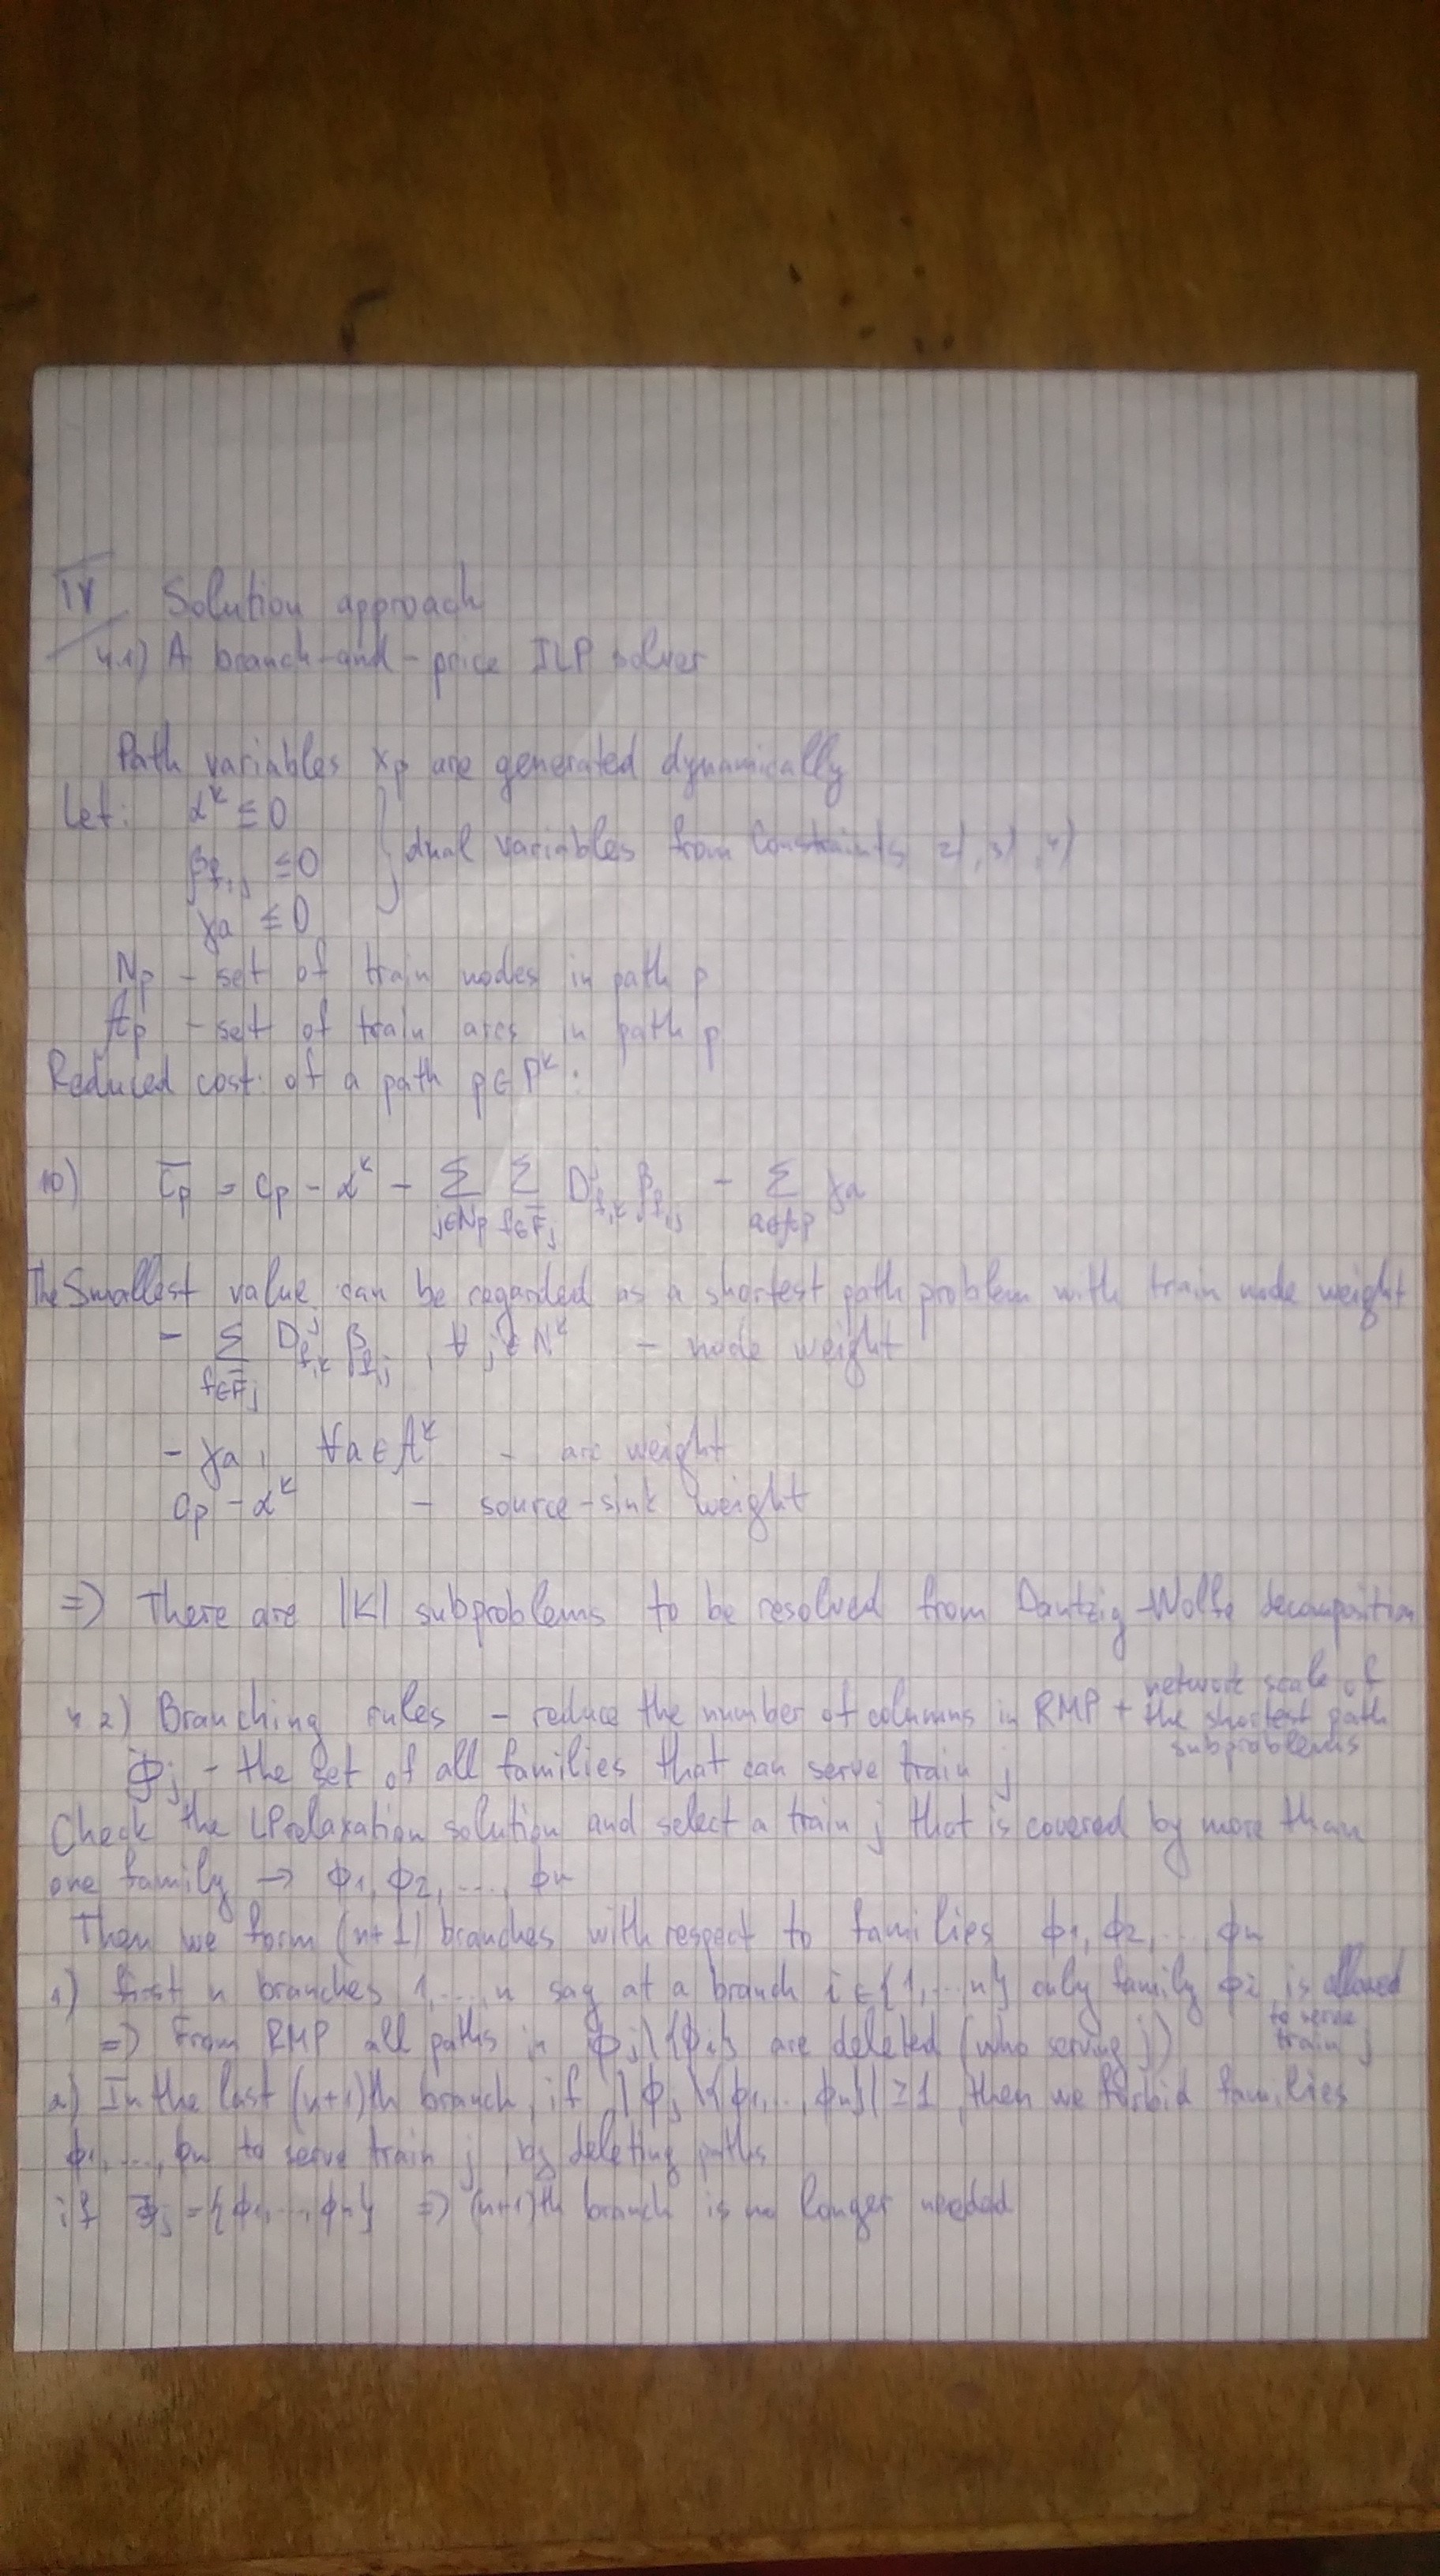 IV Solution approach
4.1) A branch-and-price ILP solver
Path variables xp are generated dynamically
Let: α^k ≤ 0
β_f,j ≤ 0 } dual variables from Constraints 2), 3), 4)
γa ≤ 0
Np - set of train nodes in path p
Ap - set of train arcs in path p
Reduced cost of a path p∈P^k:
10) c̄p = cp - α^k - Σ_{j∈Np} Σ_{f∈F_j} D^j_{f,k} β_{f,j} - Σ_{a∈Ap} γa
The Smallest value can be regarded as a shortest path problem with train node weight
- Σ_{f∈F_j} D^j_{f,k} β_{f,j}, ∀ j∈N^k - node weight
- γa, ∀a∈A^k - arc weight
cp - α^k - source-sink weight
=> There are |K| subproblems to be resolved from Dantzig-Wolfe decomposition
4.2) Branching rules - reduce the number of columns in RMP + network scale of the shortest path subproblems
Φj - the set of all families that can serve train j
Check the LP relaxation solution and select a train j that is covered by more than
one family -> ϕ1, ϕ2, ..., ϕn
Then we form (n+1) branches with respect to families ϕ1, ϕ2, ..., ϕn
1) first n branches 1, ..., n say at a branch i∈{1,...,n} only family ϕi is allowed to serve train j
=> From RMP all paths in ϕj\{ϕi} are deleted (who serving j)
2) In the last (n+1)th branch, if |ϕj\{ϕ1,...,ϕn}| ≥ 1, then we forbid families
ϕ1, ..., ϕn to serve train j, by deleting paths
if Φj = {ϕ1,...,ϕn} => (n+1)th branch is no longer needed